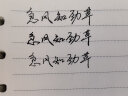 疾风知劲草
疾风知劲草
疾风知劲草